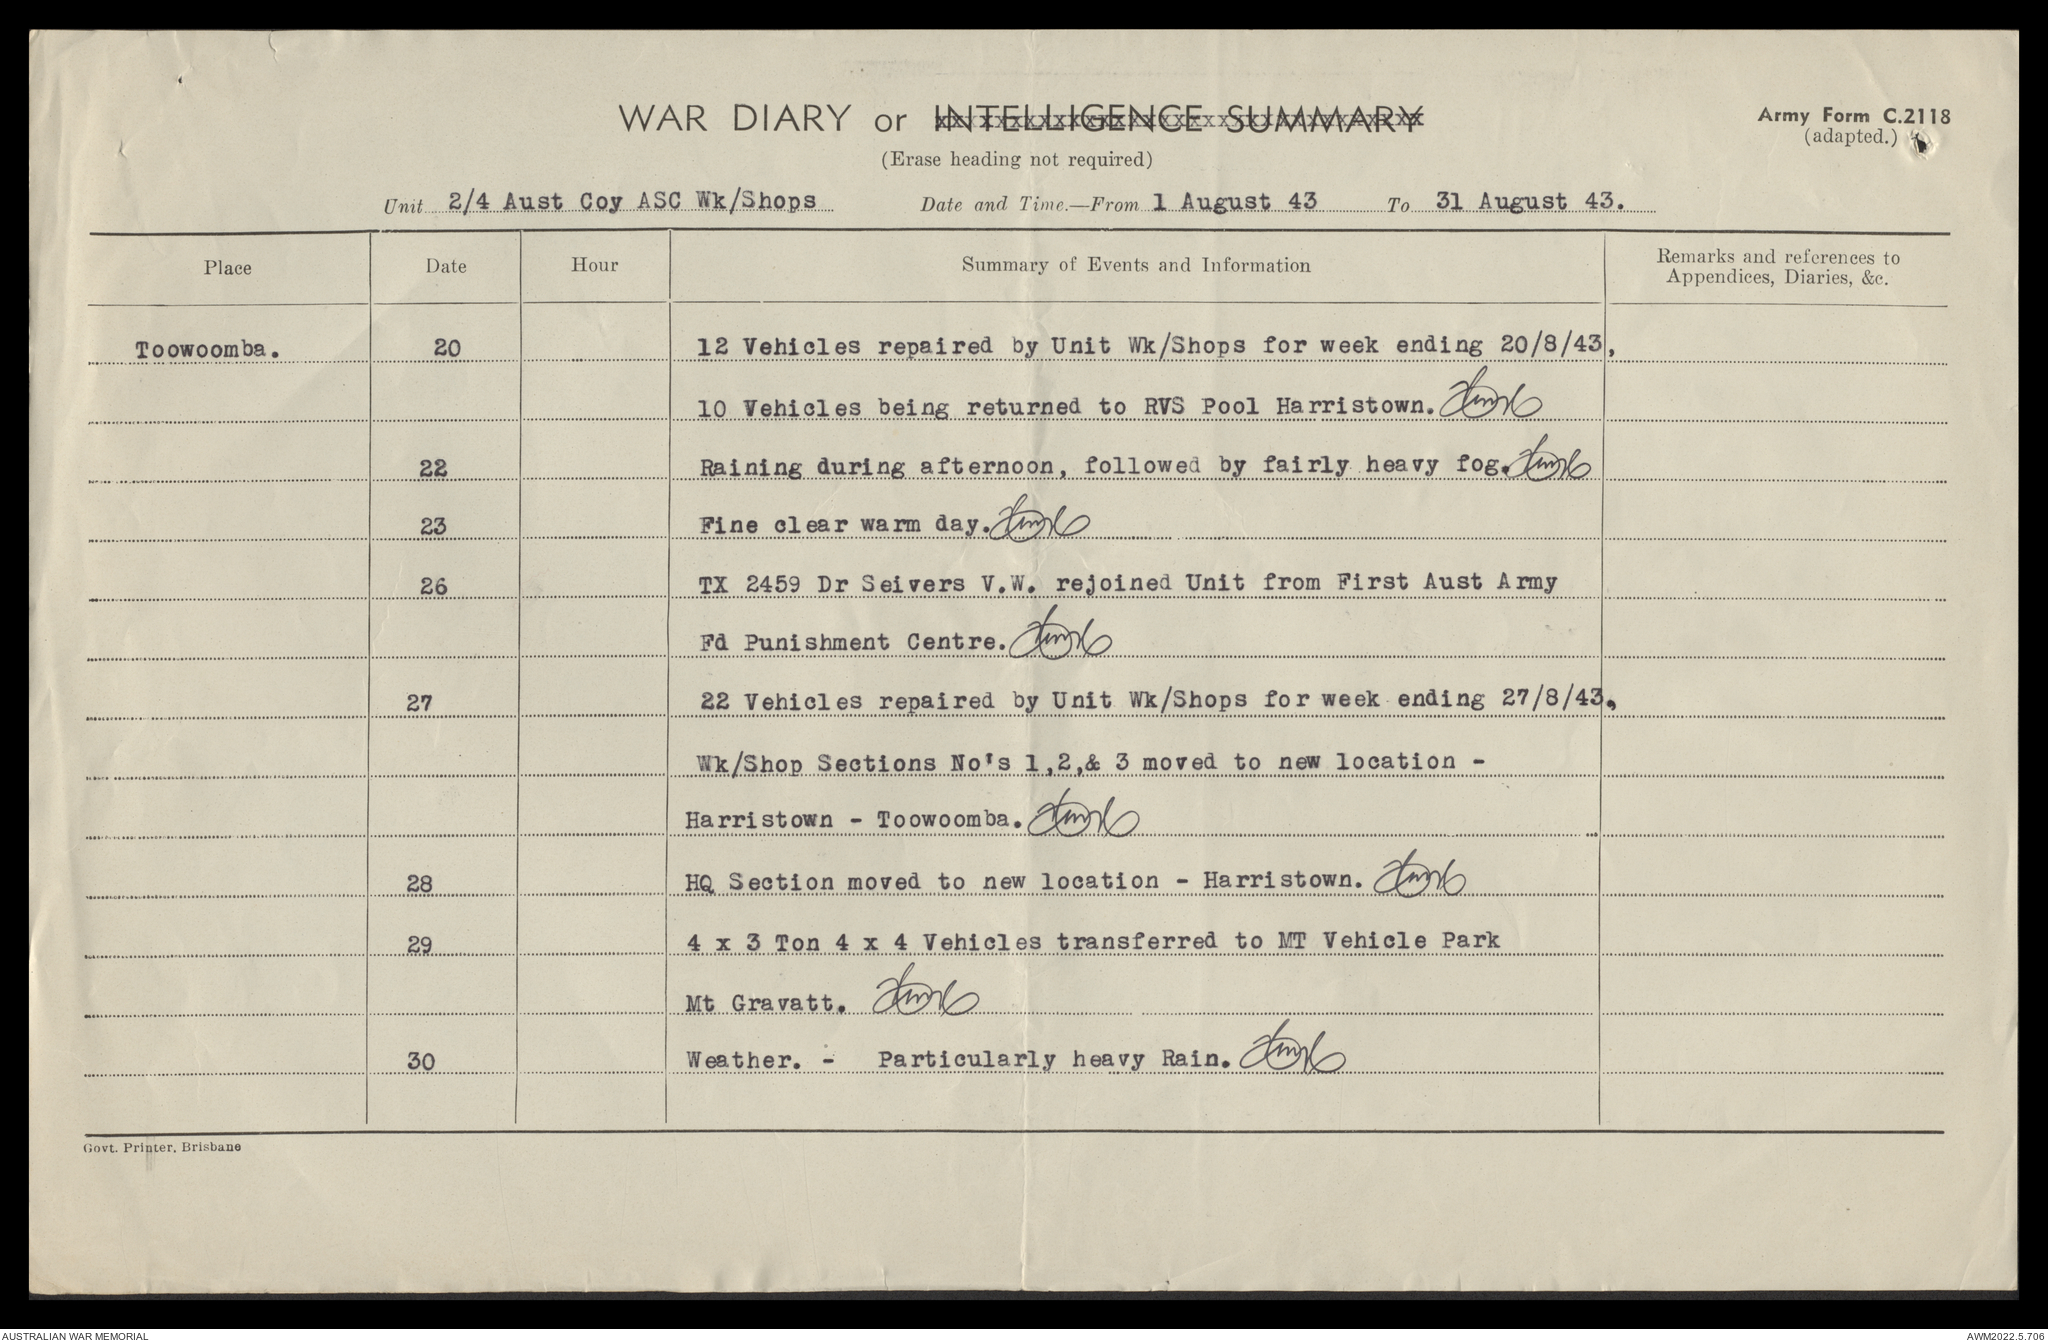 WAR DIARY or INTELLIGENCE SUMMARY
Army Form C.2118
(adapted.)
(Erase heading not required)
Unit 2/4 Aust Coy ASC Wk/Shops Date and Time.—From 1 August 43 To 31 August 43.
Place Date Hour Summary of Events and Information Remarks and references to
Appendices, Diaries, &c.
Toowoomba. 20 12 Vehicles repaired by Unit Wk/Shops for week ending 20/8/43,
10 Vehicles being returned to RVS Pool Harristown.
22 Raining during afternoon, followed by fairly heavy fog.
23 Fine clear warm day.
26 TX 2459 Dr Seivers V.W. rejoined Unit from First Aust Army
Fd Punishment Centre.
27 22 Vehicles repaired by Unit Wk/Shops for week ending 27/8/43.
Wk/Shop Sections No's 1,2,& 3 moved to new location -
Harristown - Toowoomba.
28 HQ Section moved to new location - Harristown.
29 4 x 3 Ton 4 x 4 Vehicles transferred to MT Vehicle Park
Mt Gravatt.
30 Weather. - Particularly heavy Rain.
Govt. Printer, Brisbane
AUSTRALIAN WAR MEMORIAL AWM2022.5.706